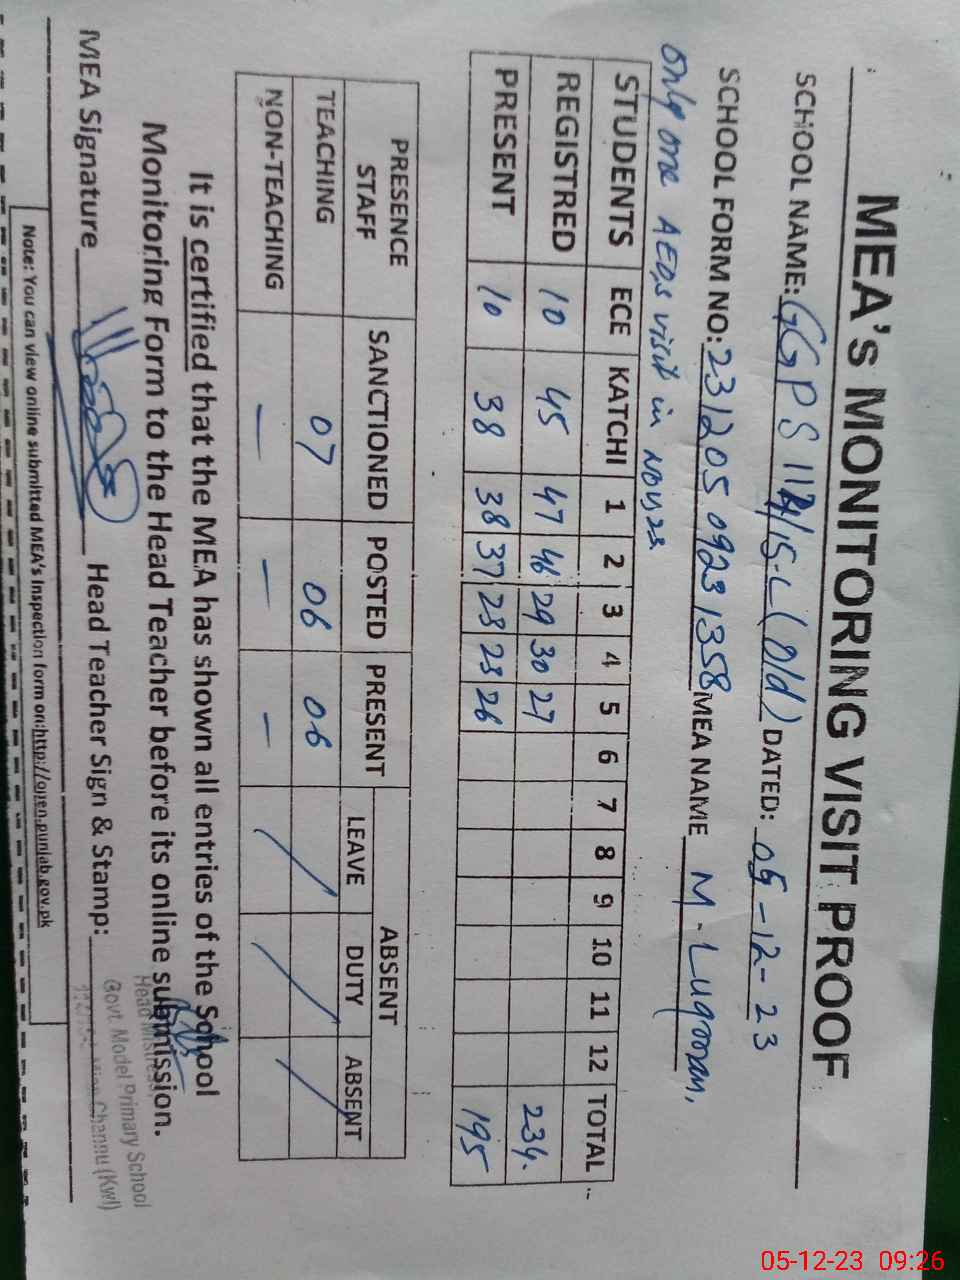 MEA's MONITORING VISIT PROOF
SCHOOL NAME: GGPS 112/15-L (Old) DATED: 05-12-23
SCHOOL FORM NO: 23120509231358 MEA NAME M-Luqman,
Only one AEO,s visit in Nov,23
STUDENTS ECE KATCHI 1 2 3 4 5 6 7 8 9 10 11 12 TOTAL
REGISTRED 10 45 47 46 29 30 27 234.
PRESENT 10 38 38 37 23 23 26 195
PRESENCE STAFF SANCTIONED POSTED PRESENT ABSENT
LEAVE DUTY ABSENT
TEACHING 07 06 06 /
NON-TEACHING — — — /
It is certified that the MEA has shown all entries of the School
Monitoring Form to the Head Teacher before its online submission.
MEA Signature Head Teacher Sign & Stamp:
Head Mistress,
Govt. Model Primary School
Mian Channu (Kwl)
Note: You can view online submitted MEA's Inspection form on:http://open.punjab.gov.pk
05-12-23 09:26